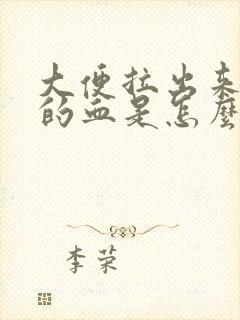 大便拉出来
的血是怎麼
李荣